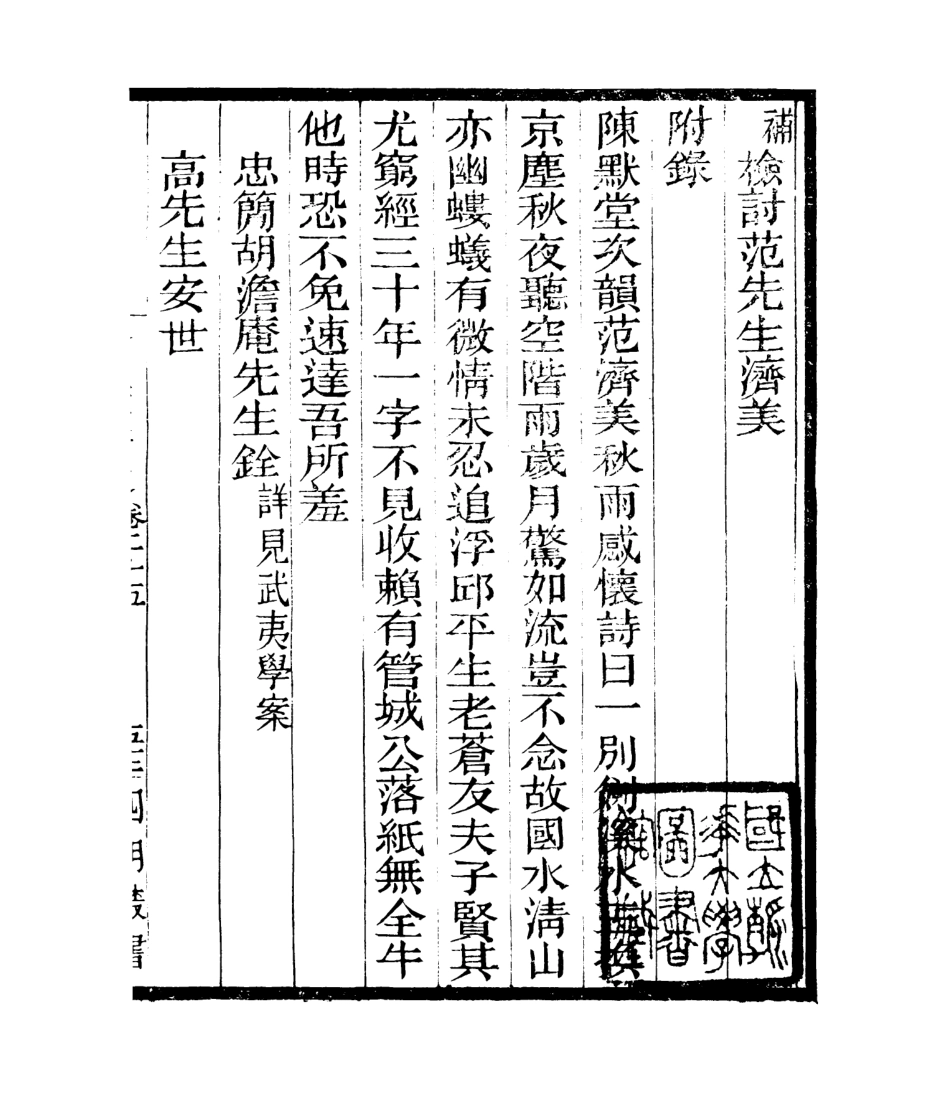 補檢討范先生濟美
附錄
陳默堂次韻范濟美秋雨感懷詩曰一別劍溪水再撲
京塵秋夜聽空階雨歲月驚如流豈不念故國水淸山
亦幽螻蟻有微情未忍追浮邱平生老蒼友夫子賢其
尤窮經三十年一字不見收賴有管城公落紙無全牛
他時恐不免速達吾所羞
忠簡胡澹庵先生銓詳見武夷學案
高先生安世
卷二十五
四明叢書
國立清
華大學
圖書
館藏